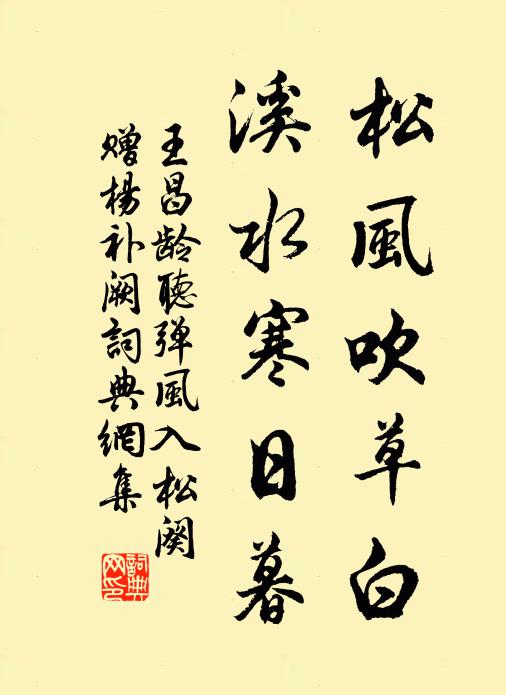 松風吹草白
溪水寒日暮
王昌龄聽弹風入松阕
赠楊补阙詞典網集
詞典
网印